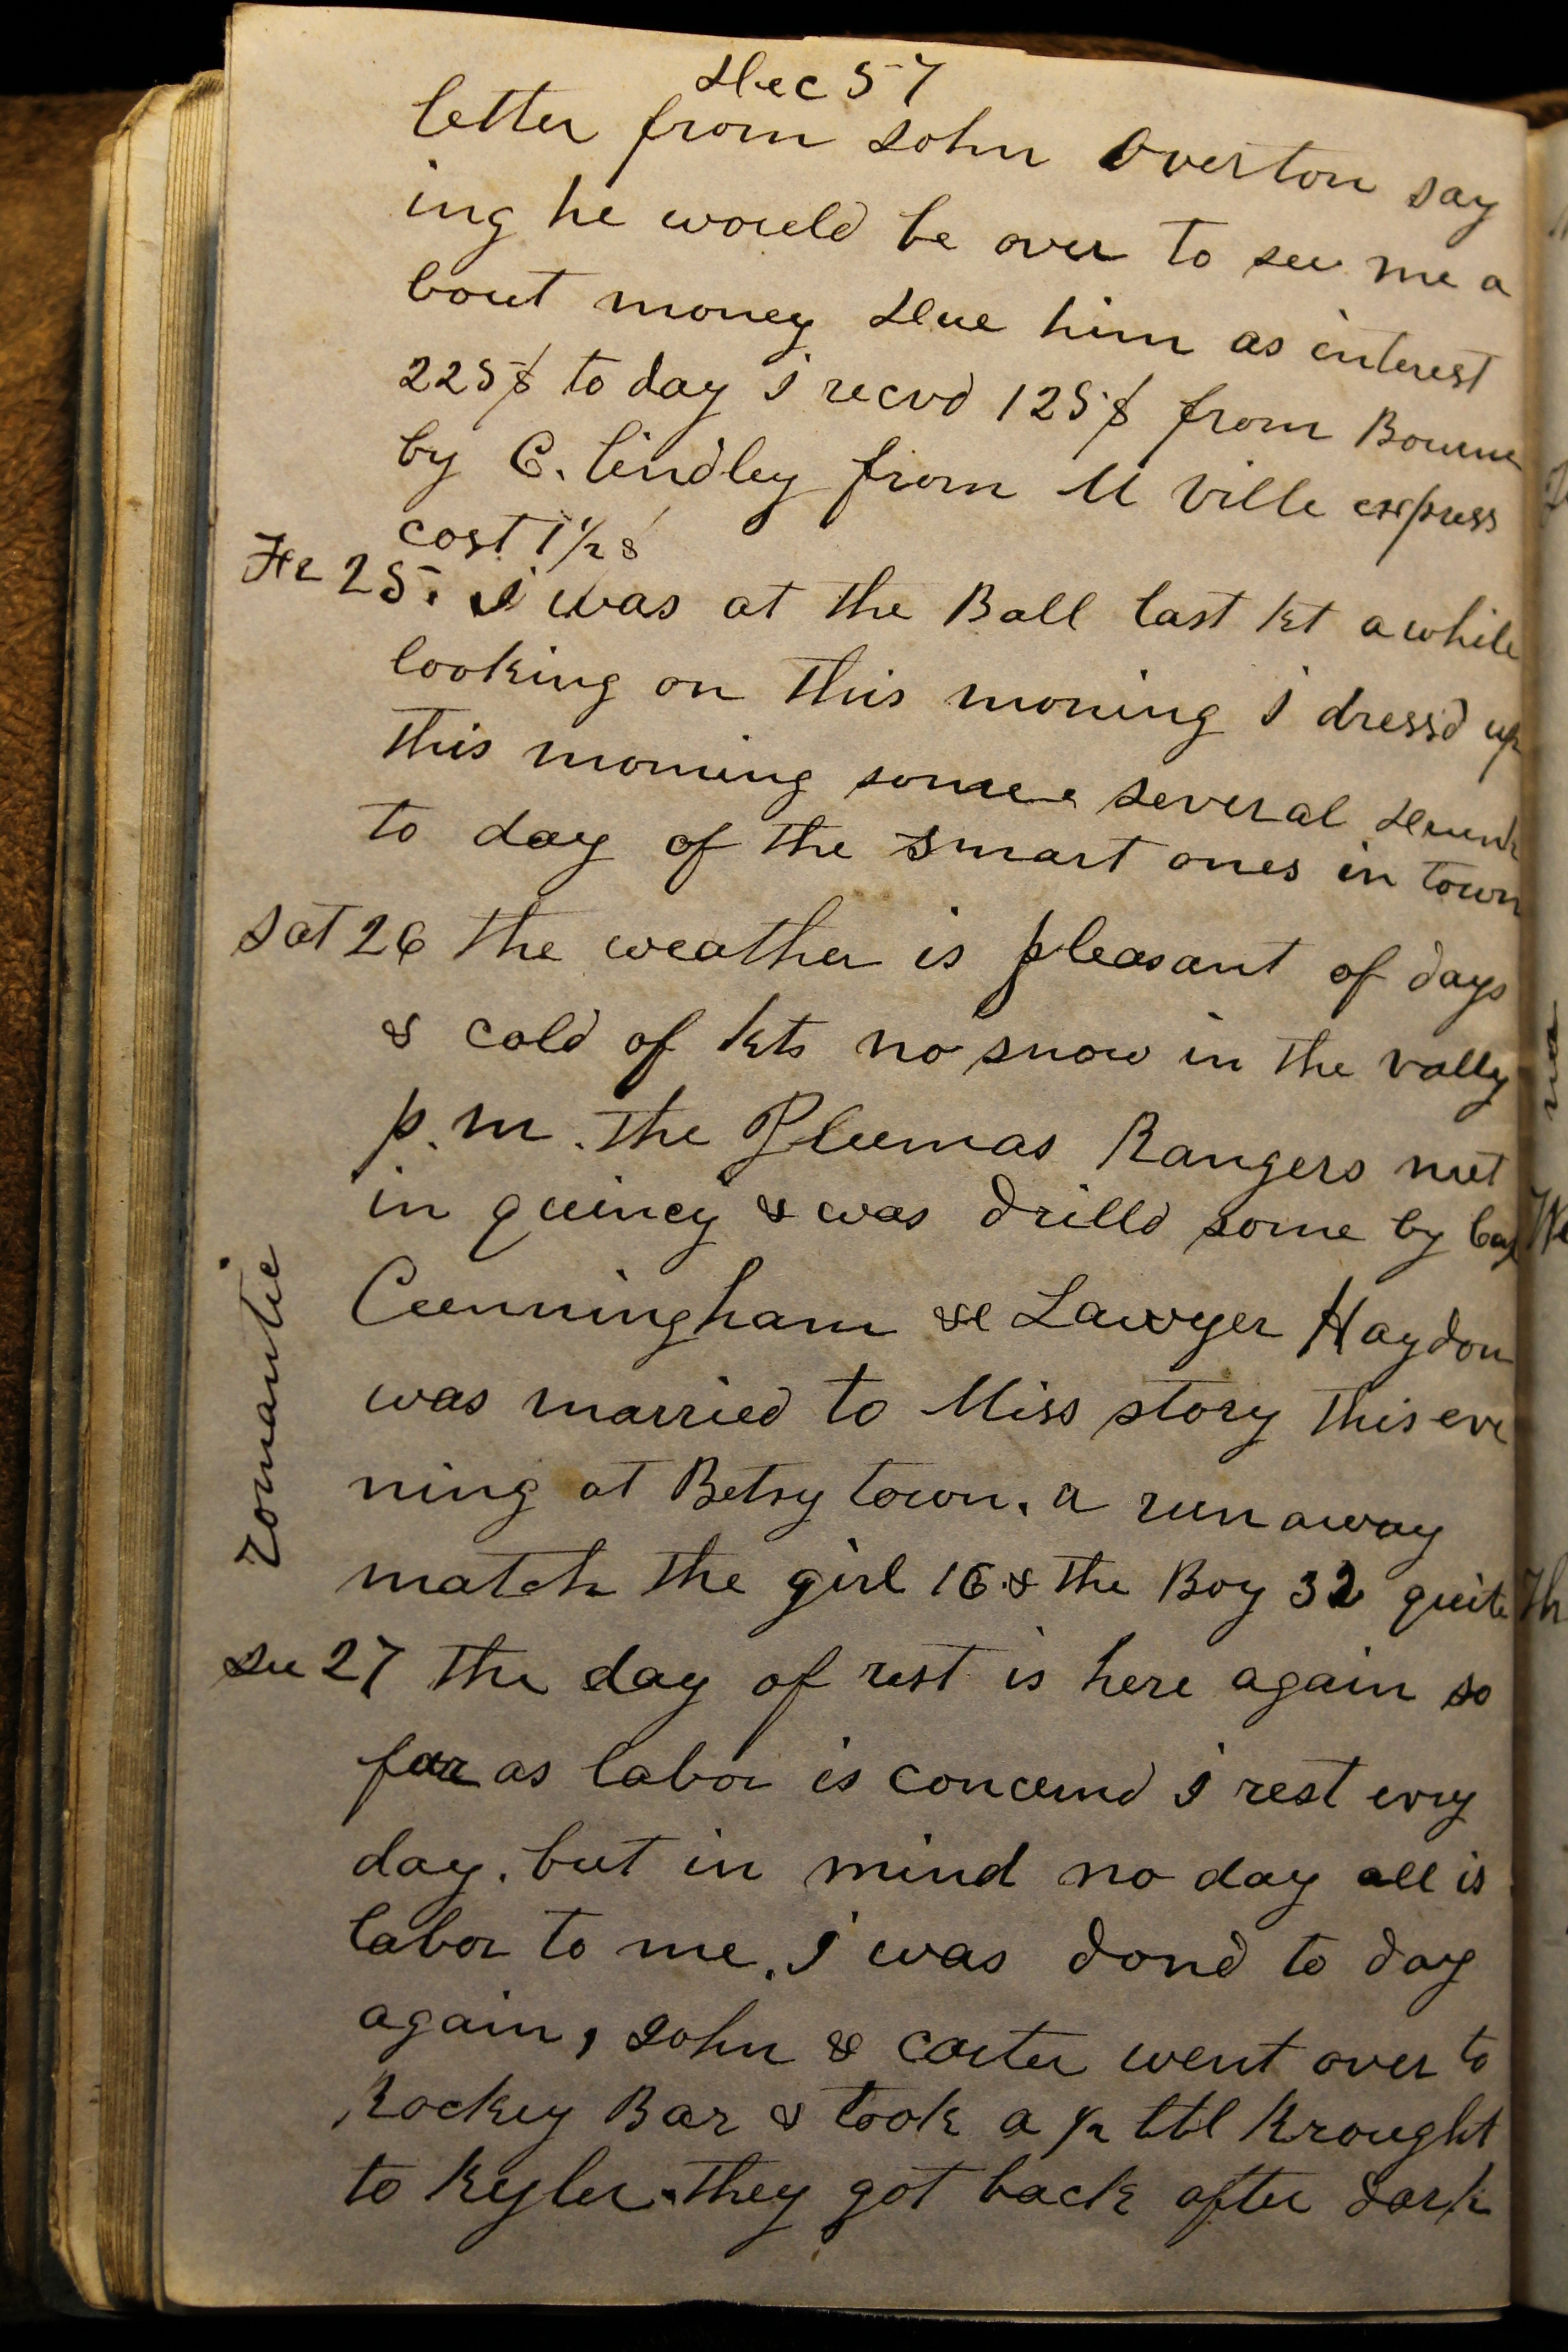 Dec 57
letter from John Overton say
ing he would be over to see me a
bout money due him as interest
225$ to day i recvd 125$ from Bourne
by C. Lindley from M Ville express
cost 1 1/2 $
Fr 25. I was at the Ball last kt awhile
looking on this moning i dress'd up
this morning some several drunk
to day of the smart ones in town
Sat 26 the weather is pleasant of days
& cold of kts no snow in the vally
p.m. the Plumas Rangers met
in quincy & was drilld some by Cap
Cunningham & Lawyer Haydon
was married to Miss story this eve
ning at Betsy town. a run away
match the girl 16 & the Boy 32 quite
romantic
Su 27 the day of rest is here again so
far as labor is concernd i rest evry
day. but in mind no day all is
labor to me. i was dond to day
again, John & carter went over to
Rockey Bar & took a 1/2 bbl
to Kyler. they got back after dark